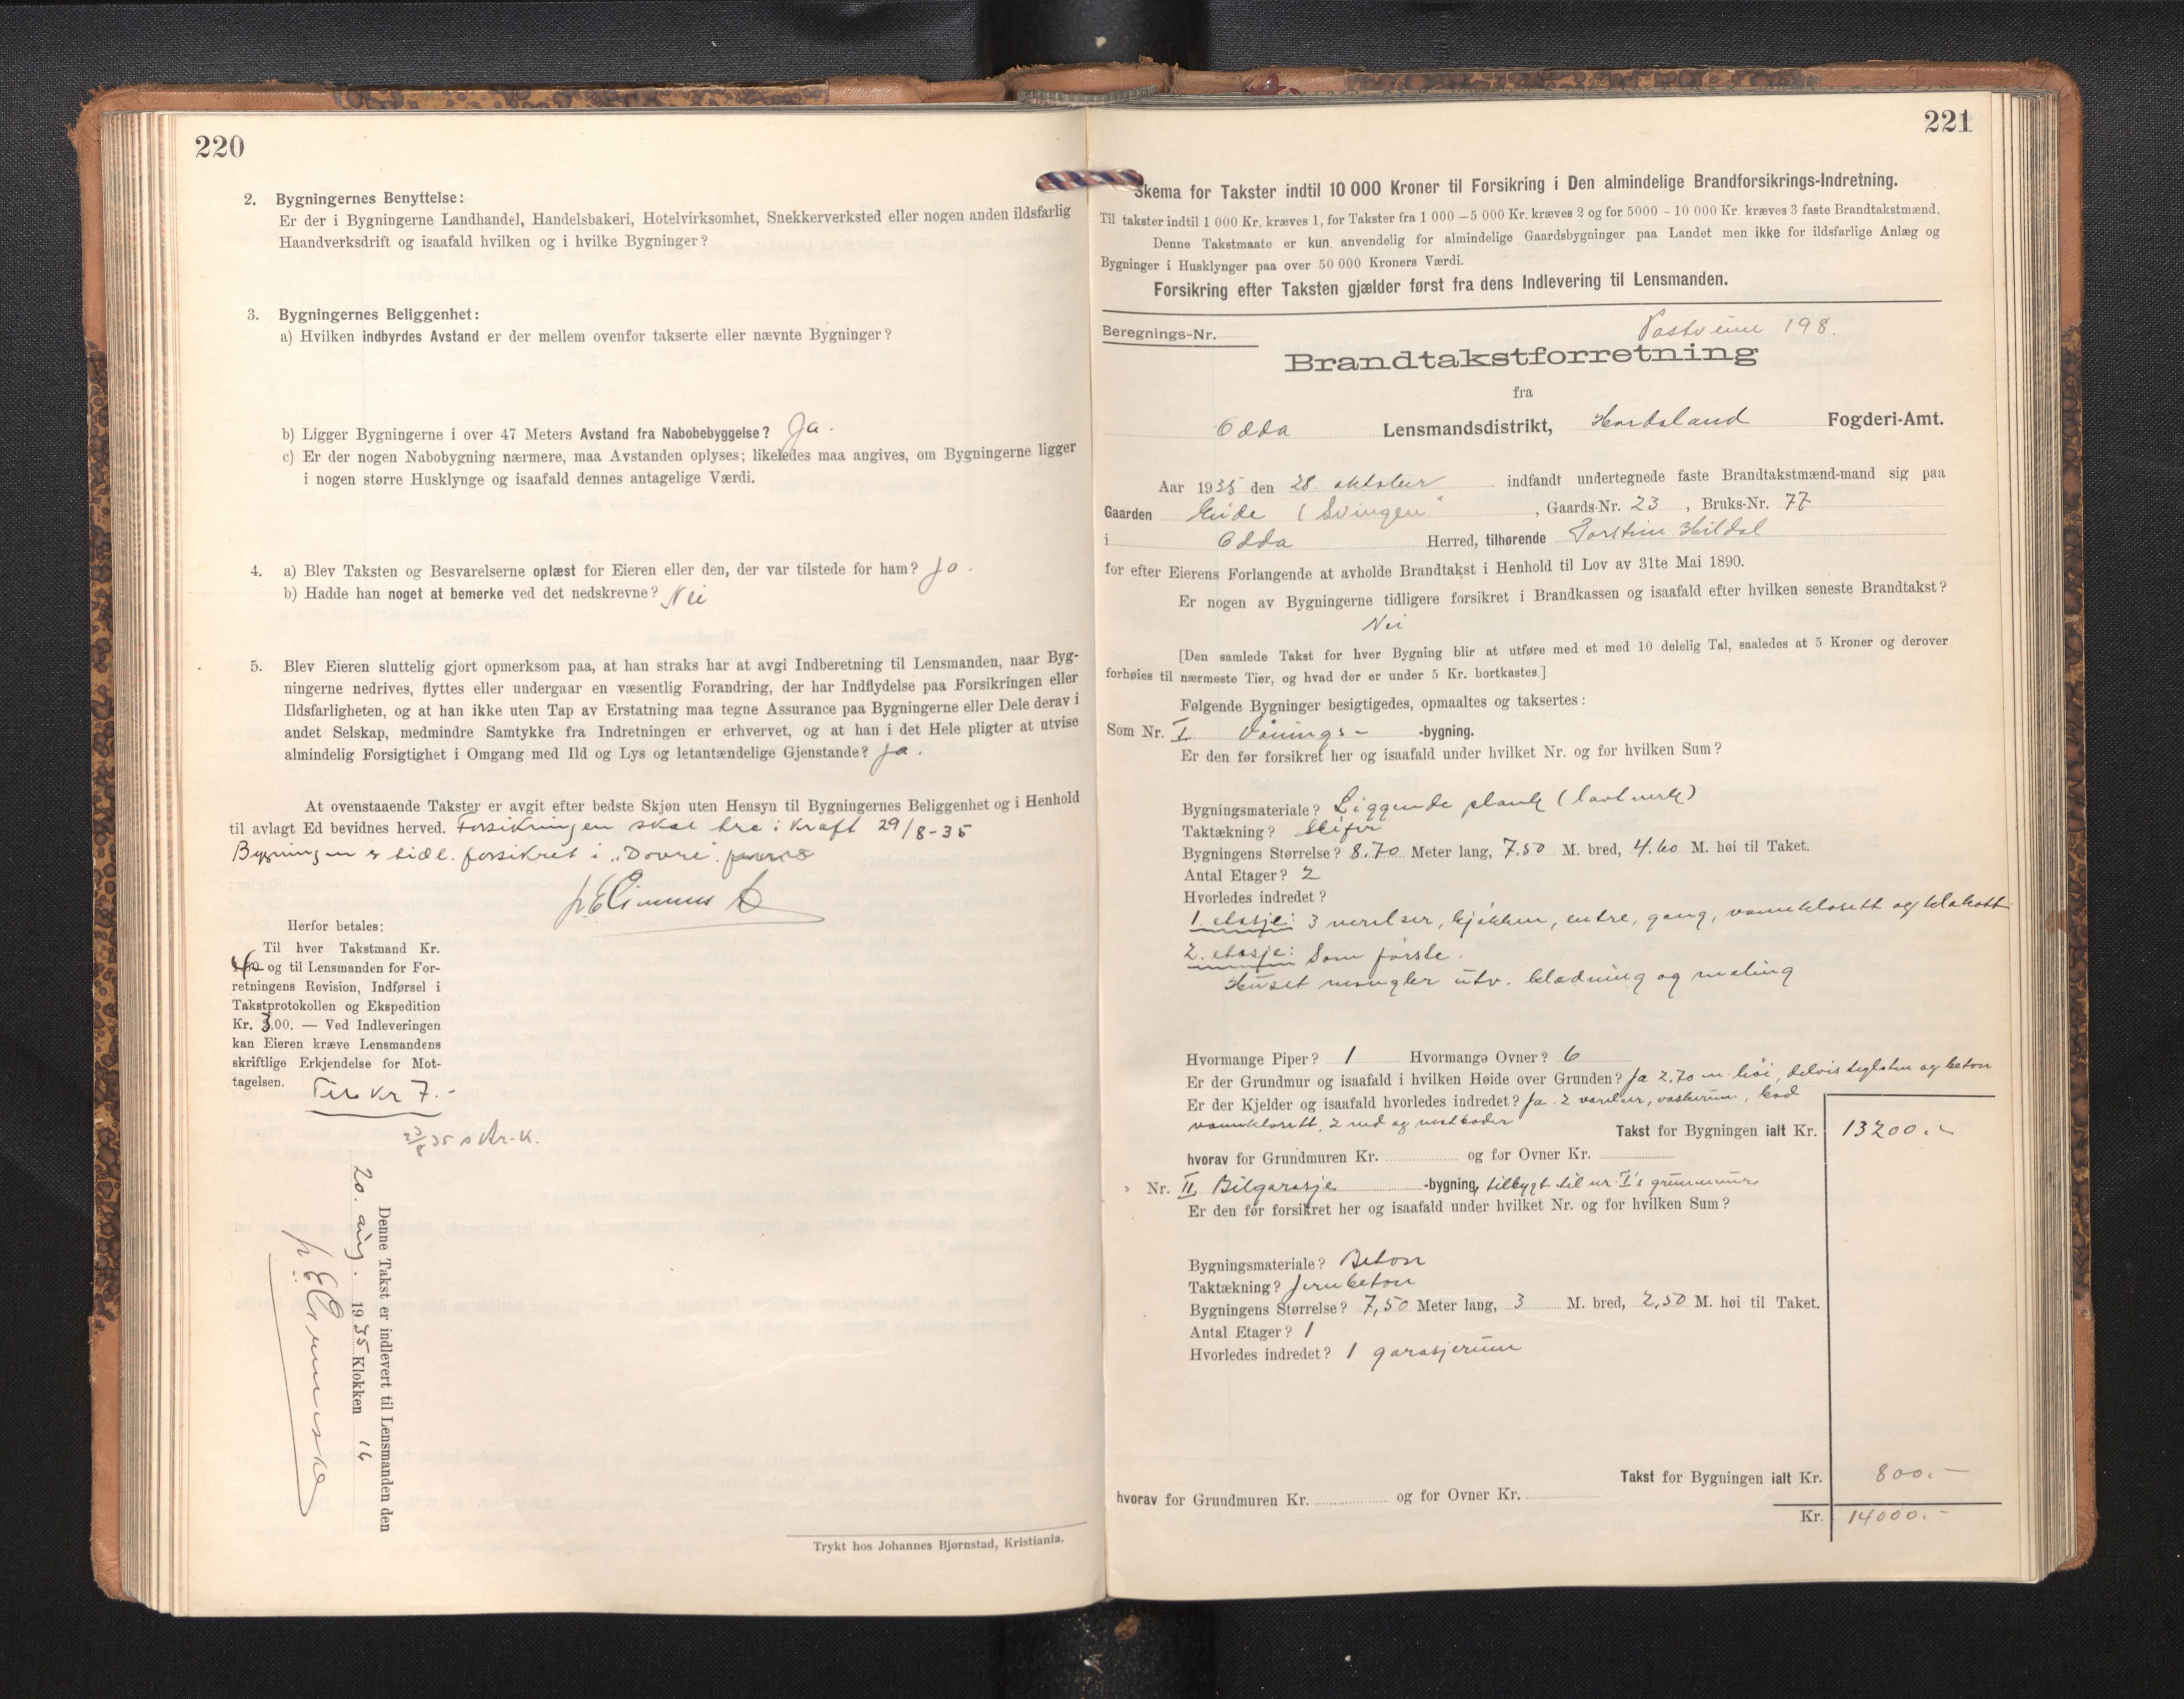 220
2. Bygningernes Benyttelse:
Er der i Bygningerne Landhandel, Handelsbakeri, Hotelvirksomhet, Snekkerverksted eller nogen anden ildsfarlig
Haandverksdrift og isaafald hvilken og i hvilke Bygninger?
3. Bygningernes Beliggenhet:
a) Hvilken indbyrdes Avstand er der mellem ovenfor takserte eller nævnte Bygninger?
b) Ligger Bygningerne i over 47 Meters Avstand fra Nabobebyggelse? Ja.
c) Er der nogen Nabobygning nærmere, maa Avstanden oplyses; likeledes maa angives, om Bygningerne ligger
i nogen større Husklynge og isaafald dennes antagelige Værdi.
4. a) Blev Taksten og Besvarelserne oplæst for Eieren eller den, der var tilstede for ham? Ja.
b) Hadde han noget at bemerke ved det nedskrevne? Nei
5. Blev Eieren sluttelig gjort opmerksom paa, at han straks har at avgi Indberetning til Lensmanden, naar Byg-
ningerne nedrives, flyttes eller undergaar en væsentlig Forandring, der har Indflydelse paa Forsikringen eller
Ildsfarligheten, og at han ikke uten Tap av Erstatning maa tegne Assurance paa Bygningerne eller Dele derav i
andet Selskap, medmindre Samtykke fra Indretningen er erhvervet, og at han i det Hele pligter at utvise
almindelig Forsigtighet i Omgang med Ild og Lys og letantændelige Gjenstande? Ja.
At ovenstaaende Takster er avgit efter bedste Skjøn uten Hensyn til Bygningernes Beliggenhet og i Henhold
til avlagt Ed bevidnes herved. Forsikringen skal tre i kraft 29/8-35
Bygningen er tidl. forsikret i "Dovre".
Herfor betales:
Til hver Takstmand Kr.
4 og til Lensmanden for For-
retningens Revision, Indførsel i
Takstprotokollen og Ekspedition
Kr. 3.00. — Ved Indleveringen
kan Eieren kræve Lensmandens
skriftlige Erkjendelse for Mot-
tagelsen.
Tils kr 7.-
Denne Takst er indlevert til Lensmanden den
20. aug. 1935 Klokken 16
Trykt hos Johannes Bjørnstad, Kristiania.
221
Skema for Takster indtil 10 000 Kroner til Forsikring i Den almindelige Brandforsikrings-Indretning.
Til takster indtil 1 000 Kr. kræves 1, for Takster fra 1 000 – 5 000 Kr. kræves 2 og for 5000 – 10 000 Kr kræves 3 faste Brandtakstmænd.
Denne Takstmaate er kun anvendelig for almindelige Gaardsbygninger paa Landet men ikke for ildsfarlige Anlæg og
Bygninger i Husklynger paa over 50 000 Kroners Værdi.
Forsikring efter Taksten gjælder først fra dens Indlevering til Lensmanden.
Beregnings-Nr. 198.
Brandtakstforretning
fra
Odda Lensmandsdistrikt, Hordaland Fogderi-Amt.
Aar 1935 den 28. oktober indfandt undertegnede faste Brandtakstmænd-mand sig paa
Gaarden Eide "Svingen", Gaards-Nr. 23, Bruks-Nr. 77
i Odda Herred, tilhørende Torstein Hildal
for efter Eierens Forlangende at avholde Brandtakst i Henhold til Lov av 31te Mai 1890.
Er nogen av Bygningerne tidligere forsikret i Brandkassen og isaafald efter hvilken seneste Brandtakst?
Nei
[Den samlede Takst for hver Bygning blir at utføre med et med 10 delelig Tal, saaledes at 5 Kroner og derover
forhøies til nærmeste Tier, og hvad der er under 5 Kr. bortkastes.]
Følgende Bygninger besigtigedes, opmaaltes og taksertes:
Som Nr. I Vånings- -bygning.
Er den før forsikret her og isaafald under hvilket Nr. og for hvilken Sum?
Bygningsmateriale? Liggende plank (lavtverk)
Taktækning? Skifer
Bygningens Størrelse? 8.70 Meter lang, 7.50 M. bred, 4.60 M. høi til Taket.
Antal Etager? 2
Hvorledes indredet?
1. etasje: 3 verelser, kjøkken, entre, gang, vannklosett og klekott
2. etasje: Som første.
Huset mangler utv. kledning og maling
Hvormange Piper? 1 Hvormange Ovner? 6
Er der Grundmur og isaafald i hvilken Høide over Grunden? Ja 2,70 m høi, delvis teglsten og beton
Er der Kjelder og isaafald hvorledes indredet? Ja. 2 verelser, vaskerum, bad
vannklosett, 2 ved og matboder
Takst for Bygningen ialt Kr. 13200.-
hvorav for Grundmuren Kr. og for Ovner Kr.
Nr. II Bilgarasje -bygning, tilbygt til nr I's grunnmur
Er den før forsikret her og isaafald under hvilket Nr. og for hvilken Sum?
Bygningsmateriale? Beton
Taktækning? Jernbeton
Bygningens Størrelse? 7,50 Meter lang, 3 M. bred, 2,50 M. høi til Taket.
Antal Etager? 1
Hvorledes indredet? 1 garasjerum
Takst for Bygningen ialt Kr. 800.-
hvorav for Grundmuren Kr. og for Ovner Kr.
Kr. 14000.-